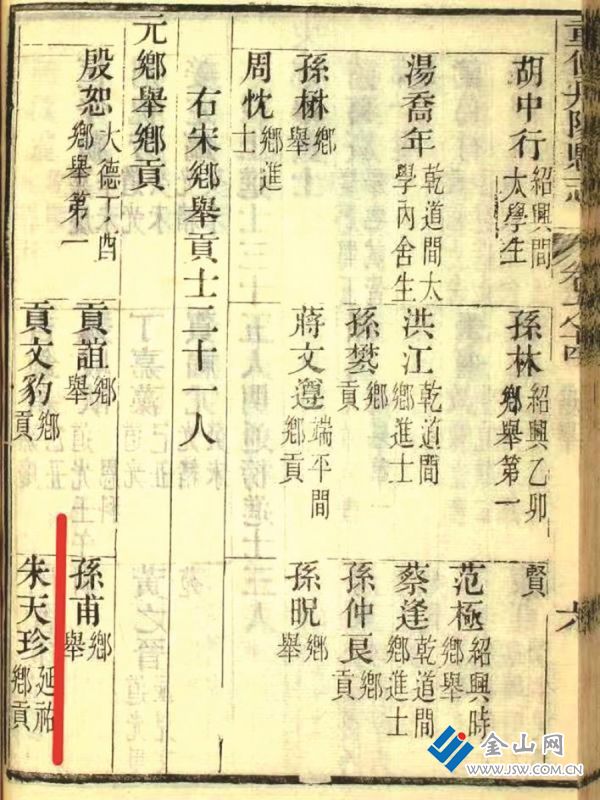 重修丹陽縣志
六
胡中行 紹興間太學生
孫林 紹興乙卯鄉舉第一
賢
范極 紹興時鄉舉
湯喬年 乾道間太學內舍生
洪江 乾道間鄉進士
蔡逢 乾道間鄉進士
孫 鄉貢
孫仲艮 鄉貢
孫楙 鄉舉
蔣文遵 端平間鄉貢
孫晛 鄉舉
周忱 鄉進士
右宋鄉舉貢士二十一人
元鄉舉鄉貢
殷恕 大德丁酉鄉舉第一
貢誼 鄉舉
孫甫 鄉舉
貢文豹 鄉貢
朱天珍 延祐鄉貢
金山网
www.JSW.com.cn